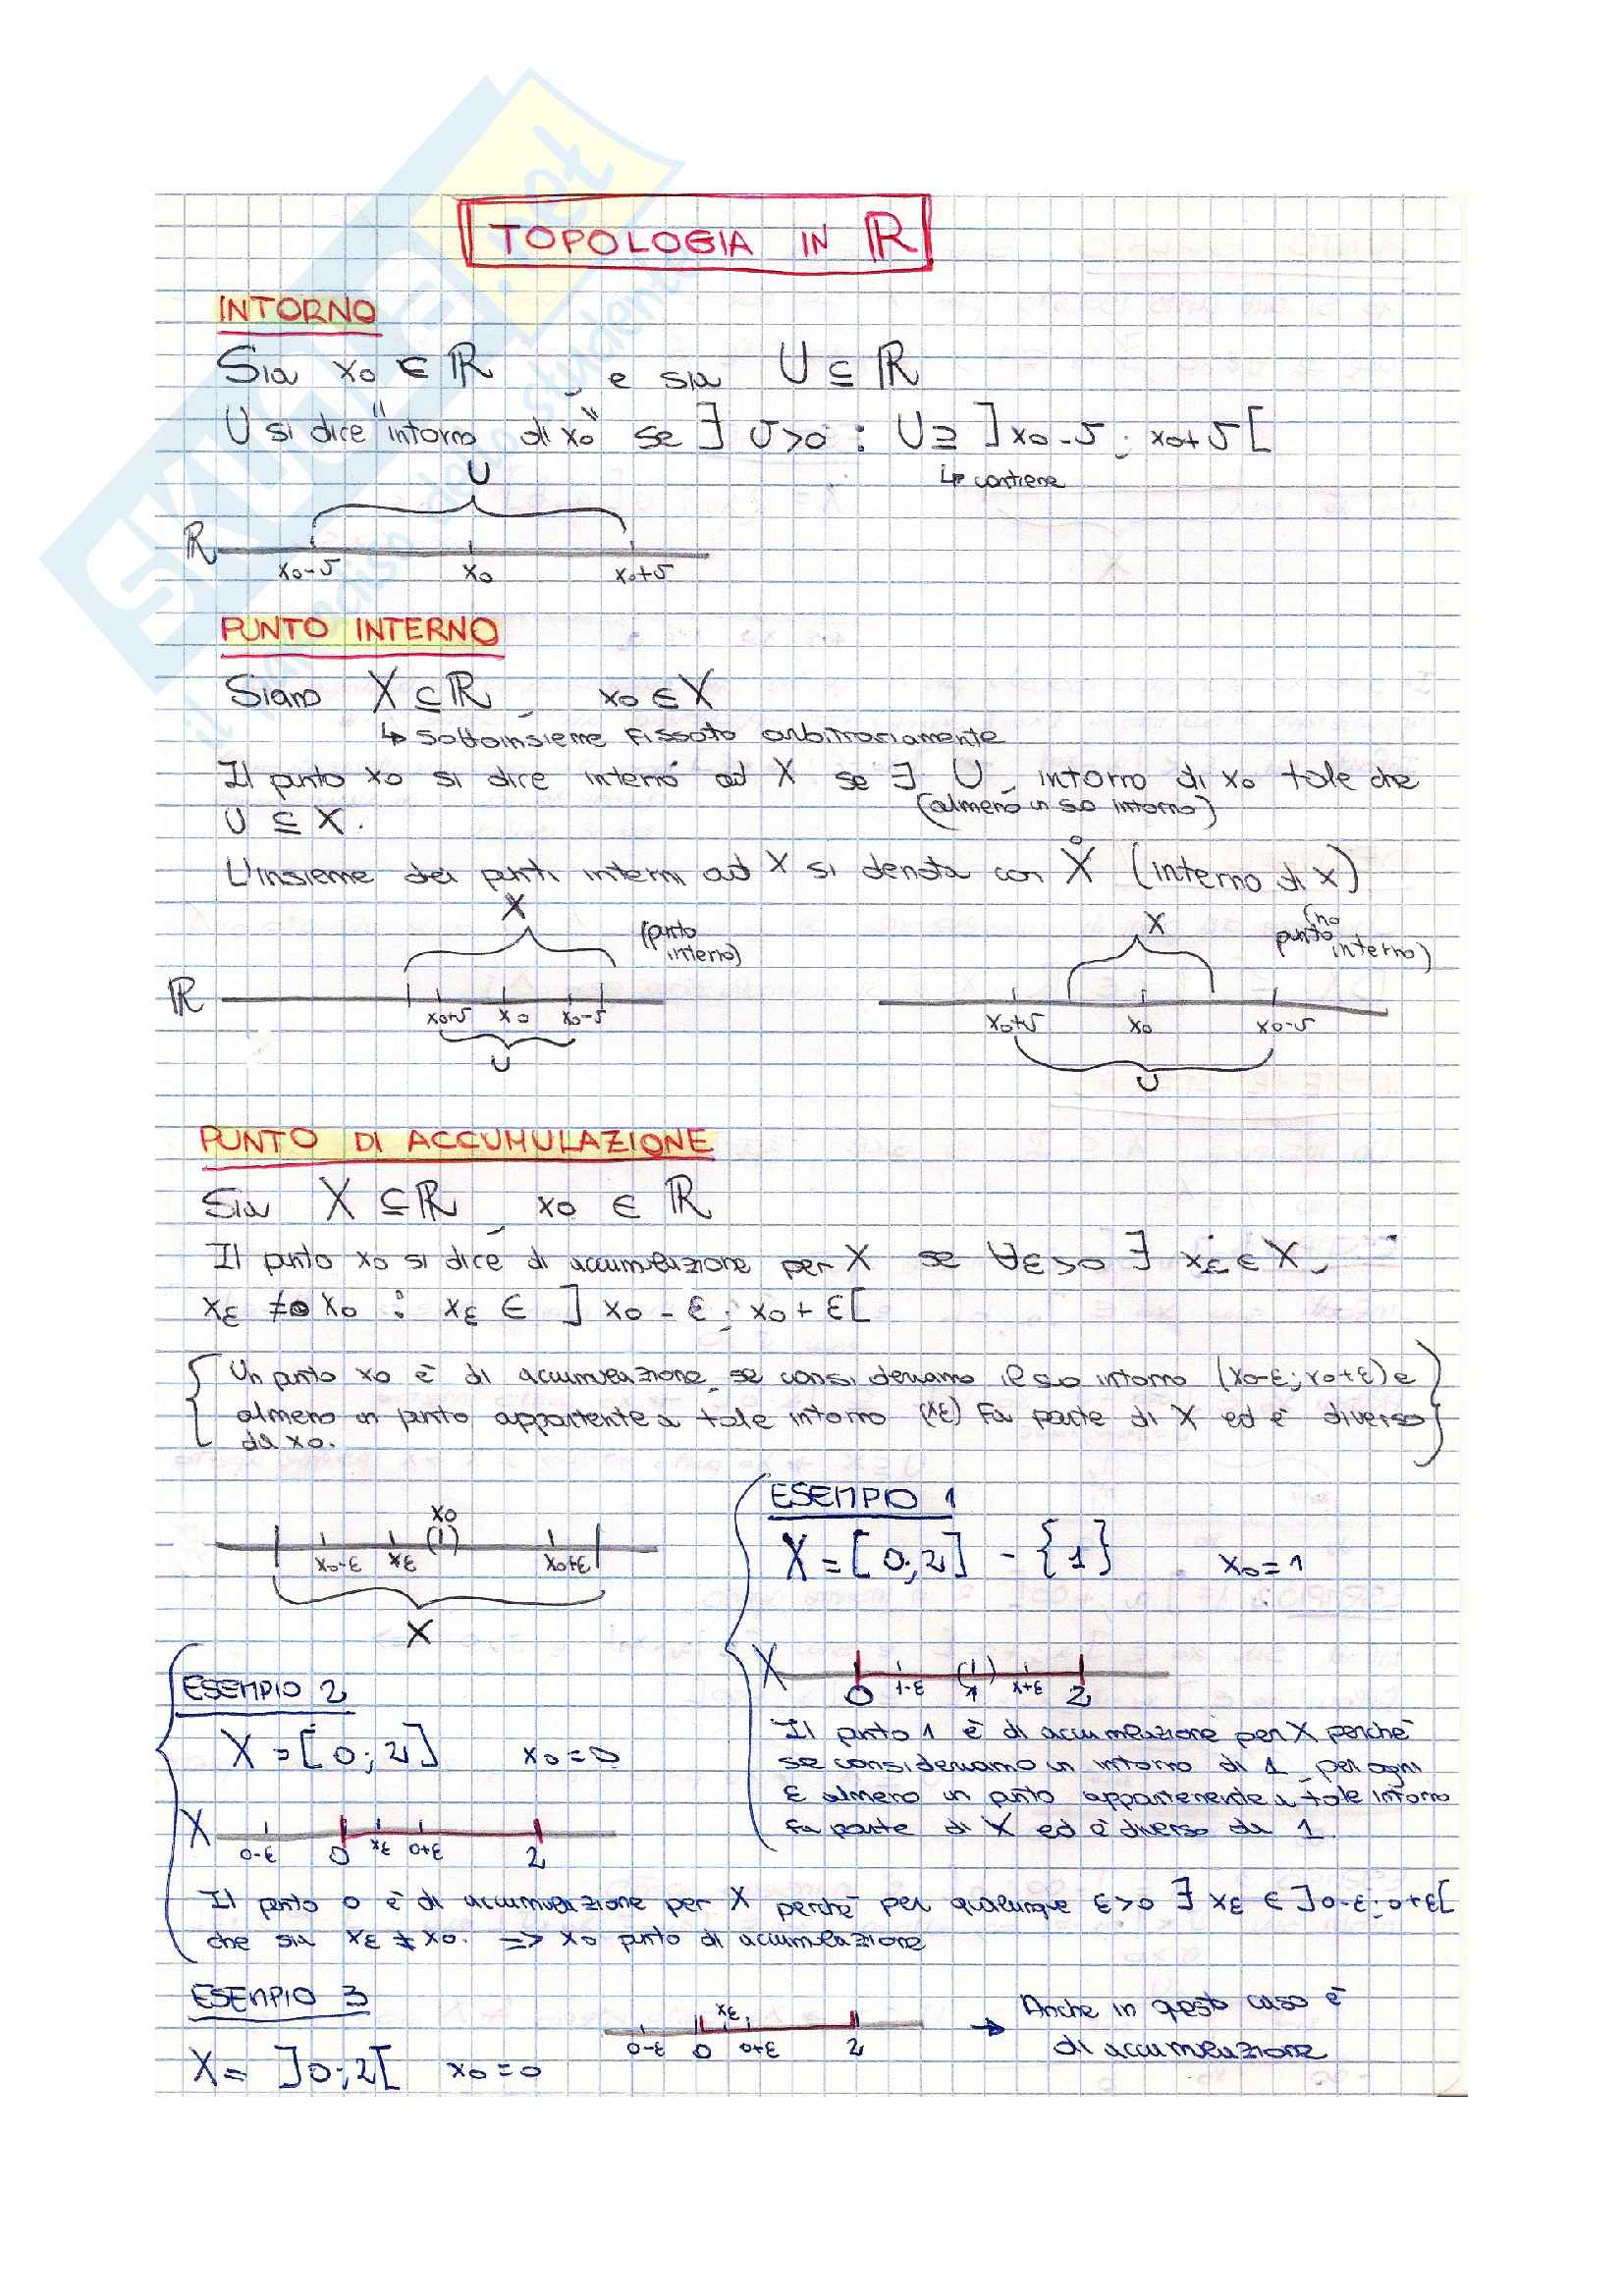 TOPOLOGIA IN ℝ
INTORNO
Sia x0 ∈ ℝ , e sia U ⊆ ℝ
U si dice "intorno di x0" se ∃ δ>0 : U ⊇ ]x0-δ ; x0+δ[
↳ contiene
U
ℝ
x0-δ x0 x0+δ
PUNTO INTERNO
Siano X ⊆ ℝ , x0 ∈ X
↳ sottoinsieme fissato arbitrariamente
Il punto x0 si dice interno ad X se ∃ U, intorno di x0 tale che
(almeno un suo intorno)
U ⊆ X.
L'insieme dei punti interni ad X si denota con X̊ (interno di x)
X (punto interno)
ℝ
x0+δ x0 x0-δ
U
X (no punto interno)
x0+δ x0 x0-δ
U
PUNTO DI ACCUMULAZIONE
Sia X ⊆ ℝ , x0 ∈ ℝ
Il punto x0 si dice di accumulazione per X se ∀ε>0 ∃ xε ∈ X,
xε ≠ x0 : xε ∈ ]x0-ε ; x0+ε[
Un punto x0 è di accumulazione, se consideriamo il suo intorno (x0-ε; x0+ε) e
almeno un punto appartente a tale intorno (xε) fa parte di X ed è diverso
da x0.
x0
x0-ε xε x0+ε
X
ESEMPIO 1
X=[0;2] - {1} x0=1
X
0 1-ε 1 x+ε 2
Il punto 1 è di accumulazione per X perché
se consideriamo un intorno di 1, per ogni
ε almeno un punto appartenente a tale intorno
fa parte di X ed è diverso da 1.
ESEMPIO 2
X=[0;2] x0=0
X
0-ε 0 xε 0+ε 2
Il punto 0 è di accumulazione per X perché per qualunque ε>0 ∃ xε ∈ ]0-ε;0+ε[
che sia xε ≠ x0. => x0 punto di accumulazione
ESEMPIO 3
X= ]0;2[ x0=0
xε
0-ε 0 0+ε 2
→ Anche in questo caso è
di accumulazione
SKUOLA.net